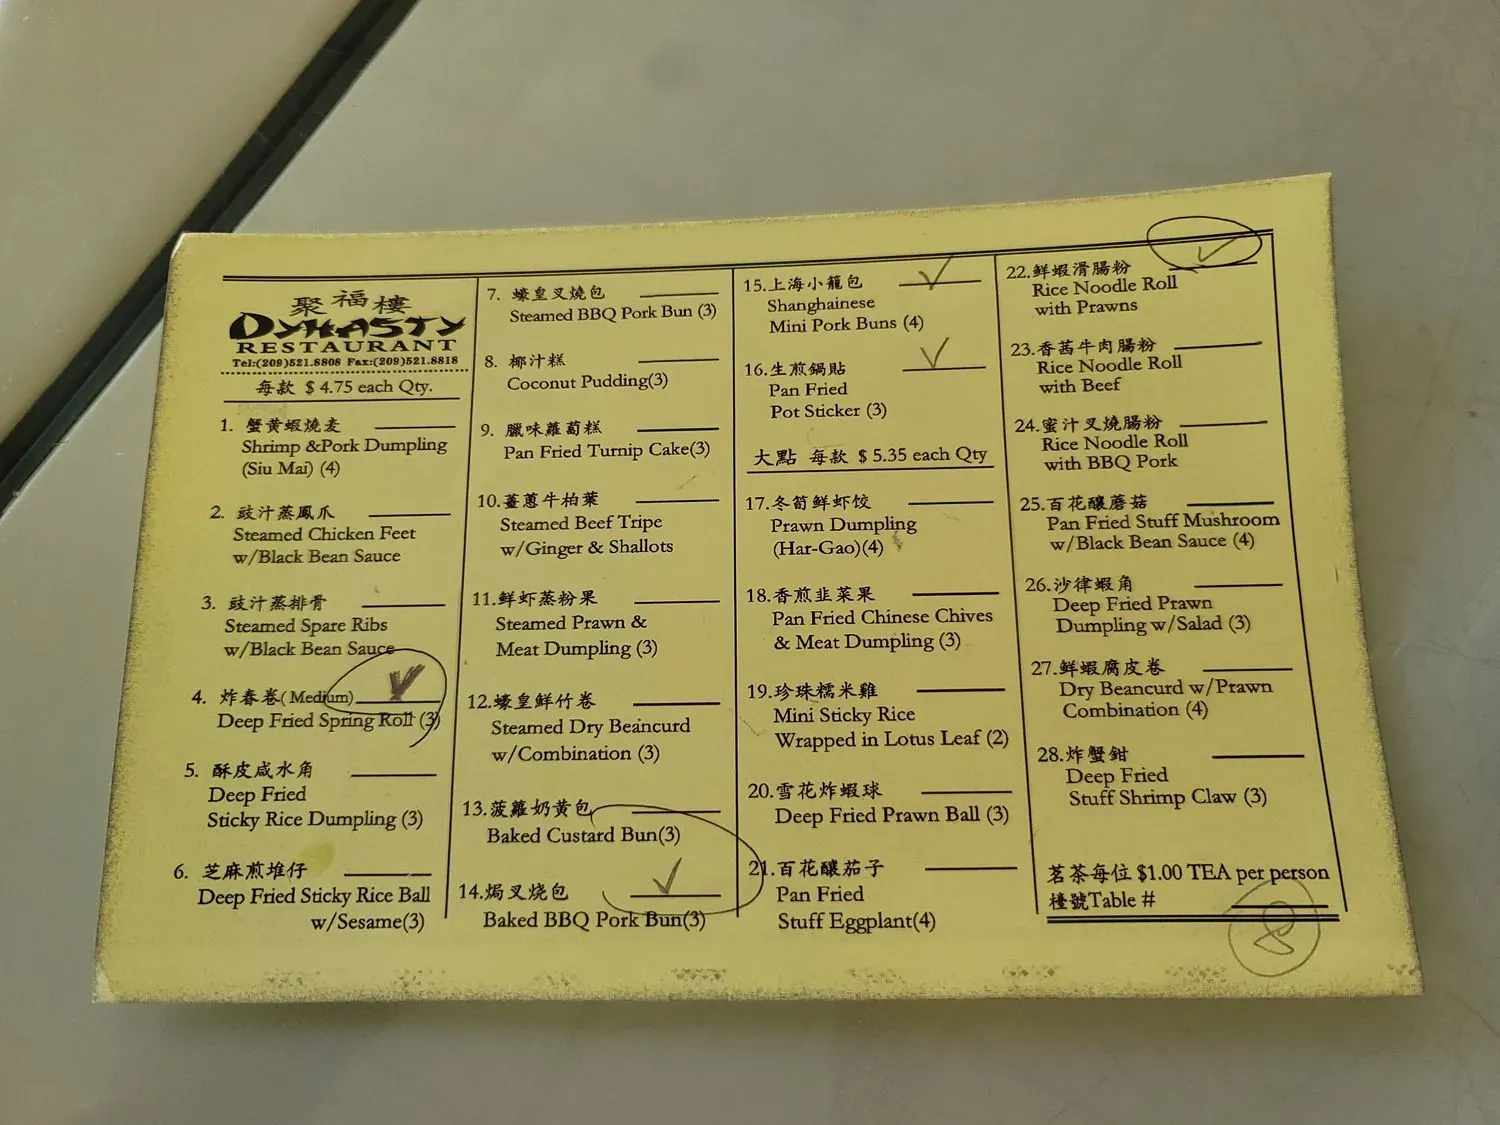 聚福樓
DYNASTY
RESTAURANT
Tel:(209)521.8808 Fax:(209)521.8818
每款 $ 4.75 each Qty.
1. 蟹黃蝦燒麦
Shrimp &Pork Dumpling
(Siu Mai) (4)
2. 豉汁蒸鳳爪
Steamed Chicken Feet
w/Black Bean Sauce
3. 豉汁蒸排骨
Steamed Spare Ribs
w/Black Bean Sauce
4. 炸春卷(Medium)
Deep Fried Spring Roll (3)
5. 酥皮咸水角
Deep Fried
Sticky Rice Dumpling (3)
6. 芝麻煎堆仔
Deep Fried Sticky Rice Ball
w/Sesame(3)
7. 蠔皇叉燒包
Steamed BBQ Pork Bun (3)
8. 椰汁糕
Coconut Pudding(3)
9. 臘味蘿蔔糕
Pan Fried Turnip Cake(3)
10.薑蔥牛柏葉
Steamed Beef Tripe
w/Ginger & Shallots
11.鮮虾蒸粉果
Steamed Prawn &
Meat Dumpling (3)
12.蠔皇鮮竹卷
Steamed Dry Beancurd
w/Combination (3)
13.菠蘿奶黃包
Baked Custard Bun(3)
14.焗叉烧包
Baked BBQ Pork Bun(3)
15.上海小籠包
Shanghainese
Mini Pork Buns (4)
16.生煎鍋貼
Pan Fried
Pot Sticker (3)
大點 每款 $ 5.35 each Qty
17.冬筍鮮虾饺
Prawn Dumpling
(Har-Gao)(4)
18.香煎韭菜果
Pan Fried Chinese Chives
& Meat Dumpling (3)
19.珍珠糯米雞
Mini Sticky Rice
Wrapped in Lotus Leaf (2)
20.雪花炸蝦球
Deep Fried Prawn Ball (3)
21.百花釀茄子
Pan Fried
Stuff Eggplant(4)
22.鮮蝦滑腸粉
Rice Noodle Roll
with Prawns
23.香茜牛肉腸粉
Rice Noodle Roll
with Beef
24.蜜汁叉燒腸粉
Rice Noodle Roll
with BBQ Pork
25.百花釀蘑菇
Pan Fried Stuff Mushroom
w/Black Bean Sauce (4)
26.沙律蝦角
Deep Fried Prawn
Dumpling w/Salad (3)
27.鮮蝦腐皮卷
Dry Beancurd w/Prawn
Combination (4)
28.炸蟹鉗
Deep Fried
Stuff Shrimp Claw (3)
茗茶每位 $1.00 TEA per person
檯號Table #
8